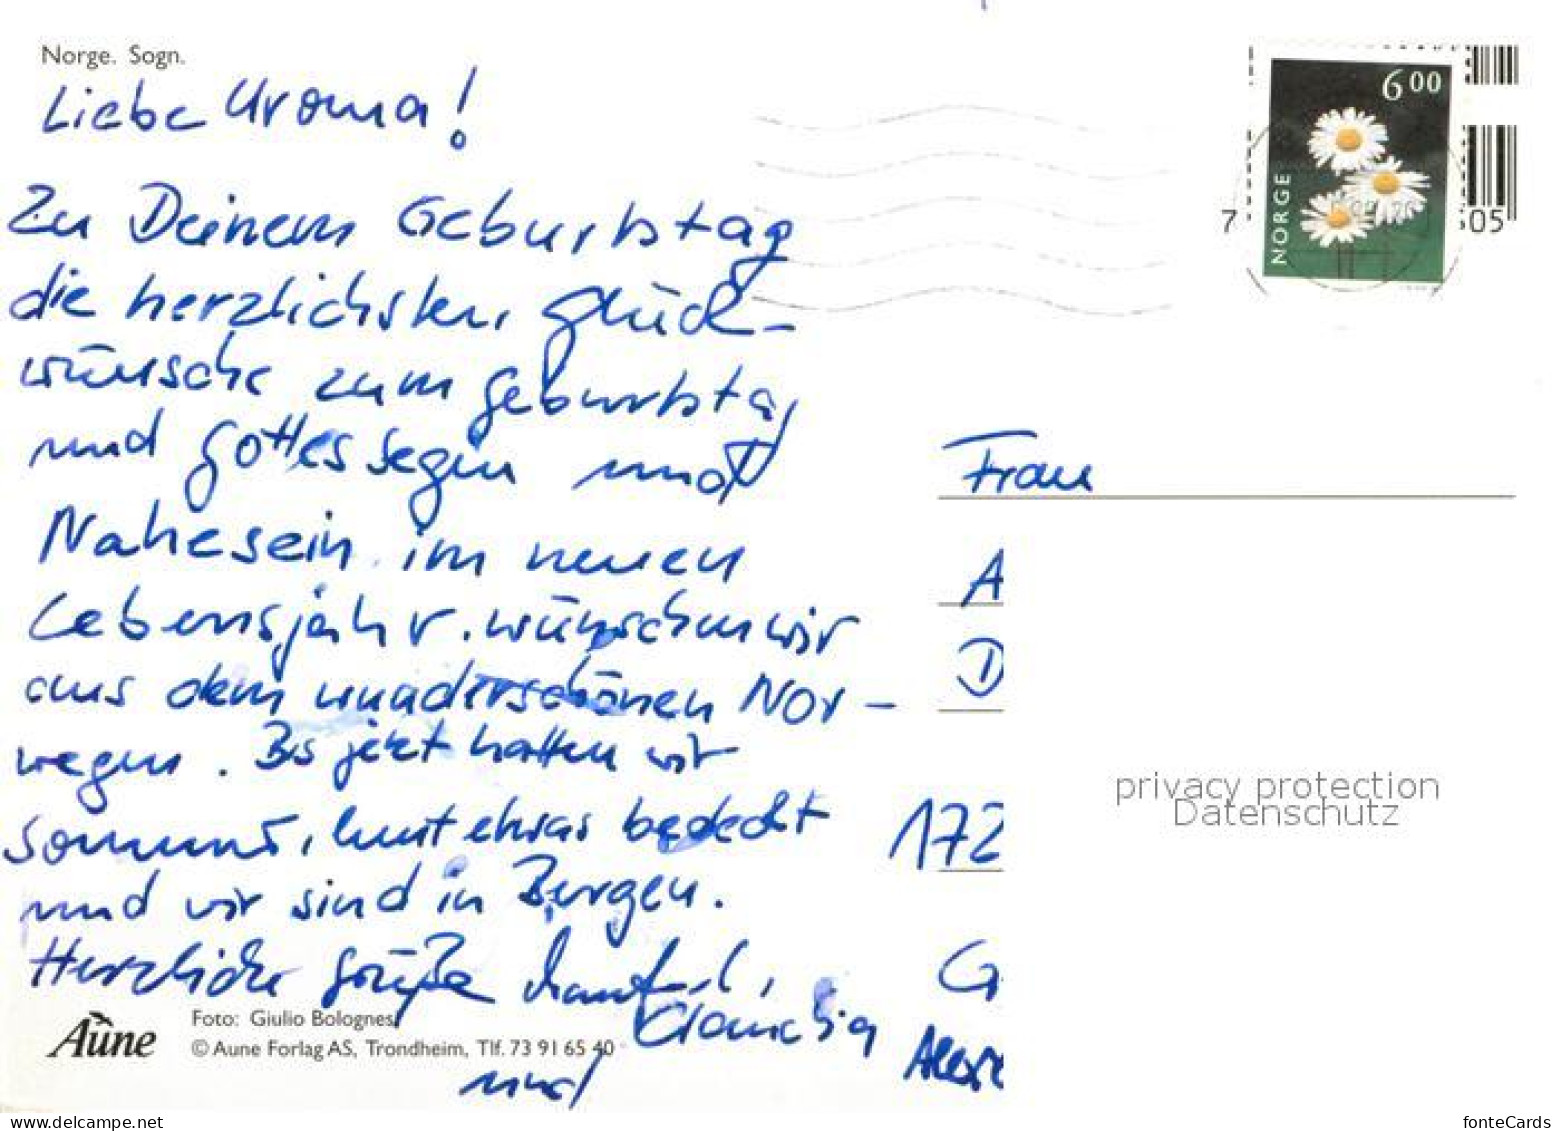 Norge. Sogn.
Liebe Uroma!
Zu Deinem Geburtstag
die herzlichsten Glück-
wünsche zum Geburtstag
und Gottes Segen und
Nahesein im neuen
Lebensjahr. wünschen wir
aus dem wunderschönen Nor-
wegen. Bis jetzt hatten wir
Sonne, heut etwas bedeckt
und wir sind in Bergen.
Herzliche Grüße
Claudia
und
Aune
Foto: Giulio Bolognesi
© Aune Forlag AS, Trondheim, Tlf. 73 91 65 40
6 00
NORGE
7
505
Frau
A
D
172
G
privacy protection
Datenschutz
www.delcampe.net
fonteCards